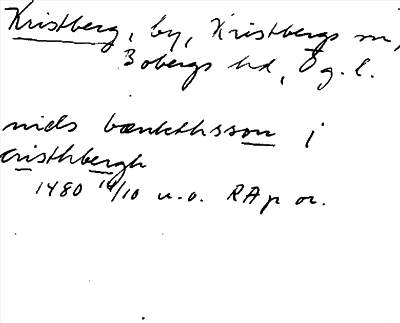 Kristberg, by, Kristbergs sn,
Bobergs hd, Ög. l.
niels bænkthsson j
cristhbergh
1480 14/10 u.o. RAp or.